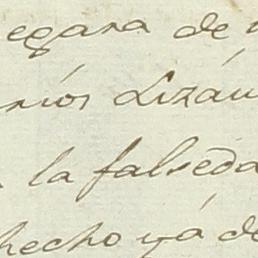 egara de
rios Lizáu
la falseda
hecho yá de